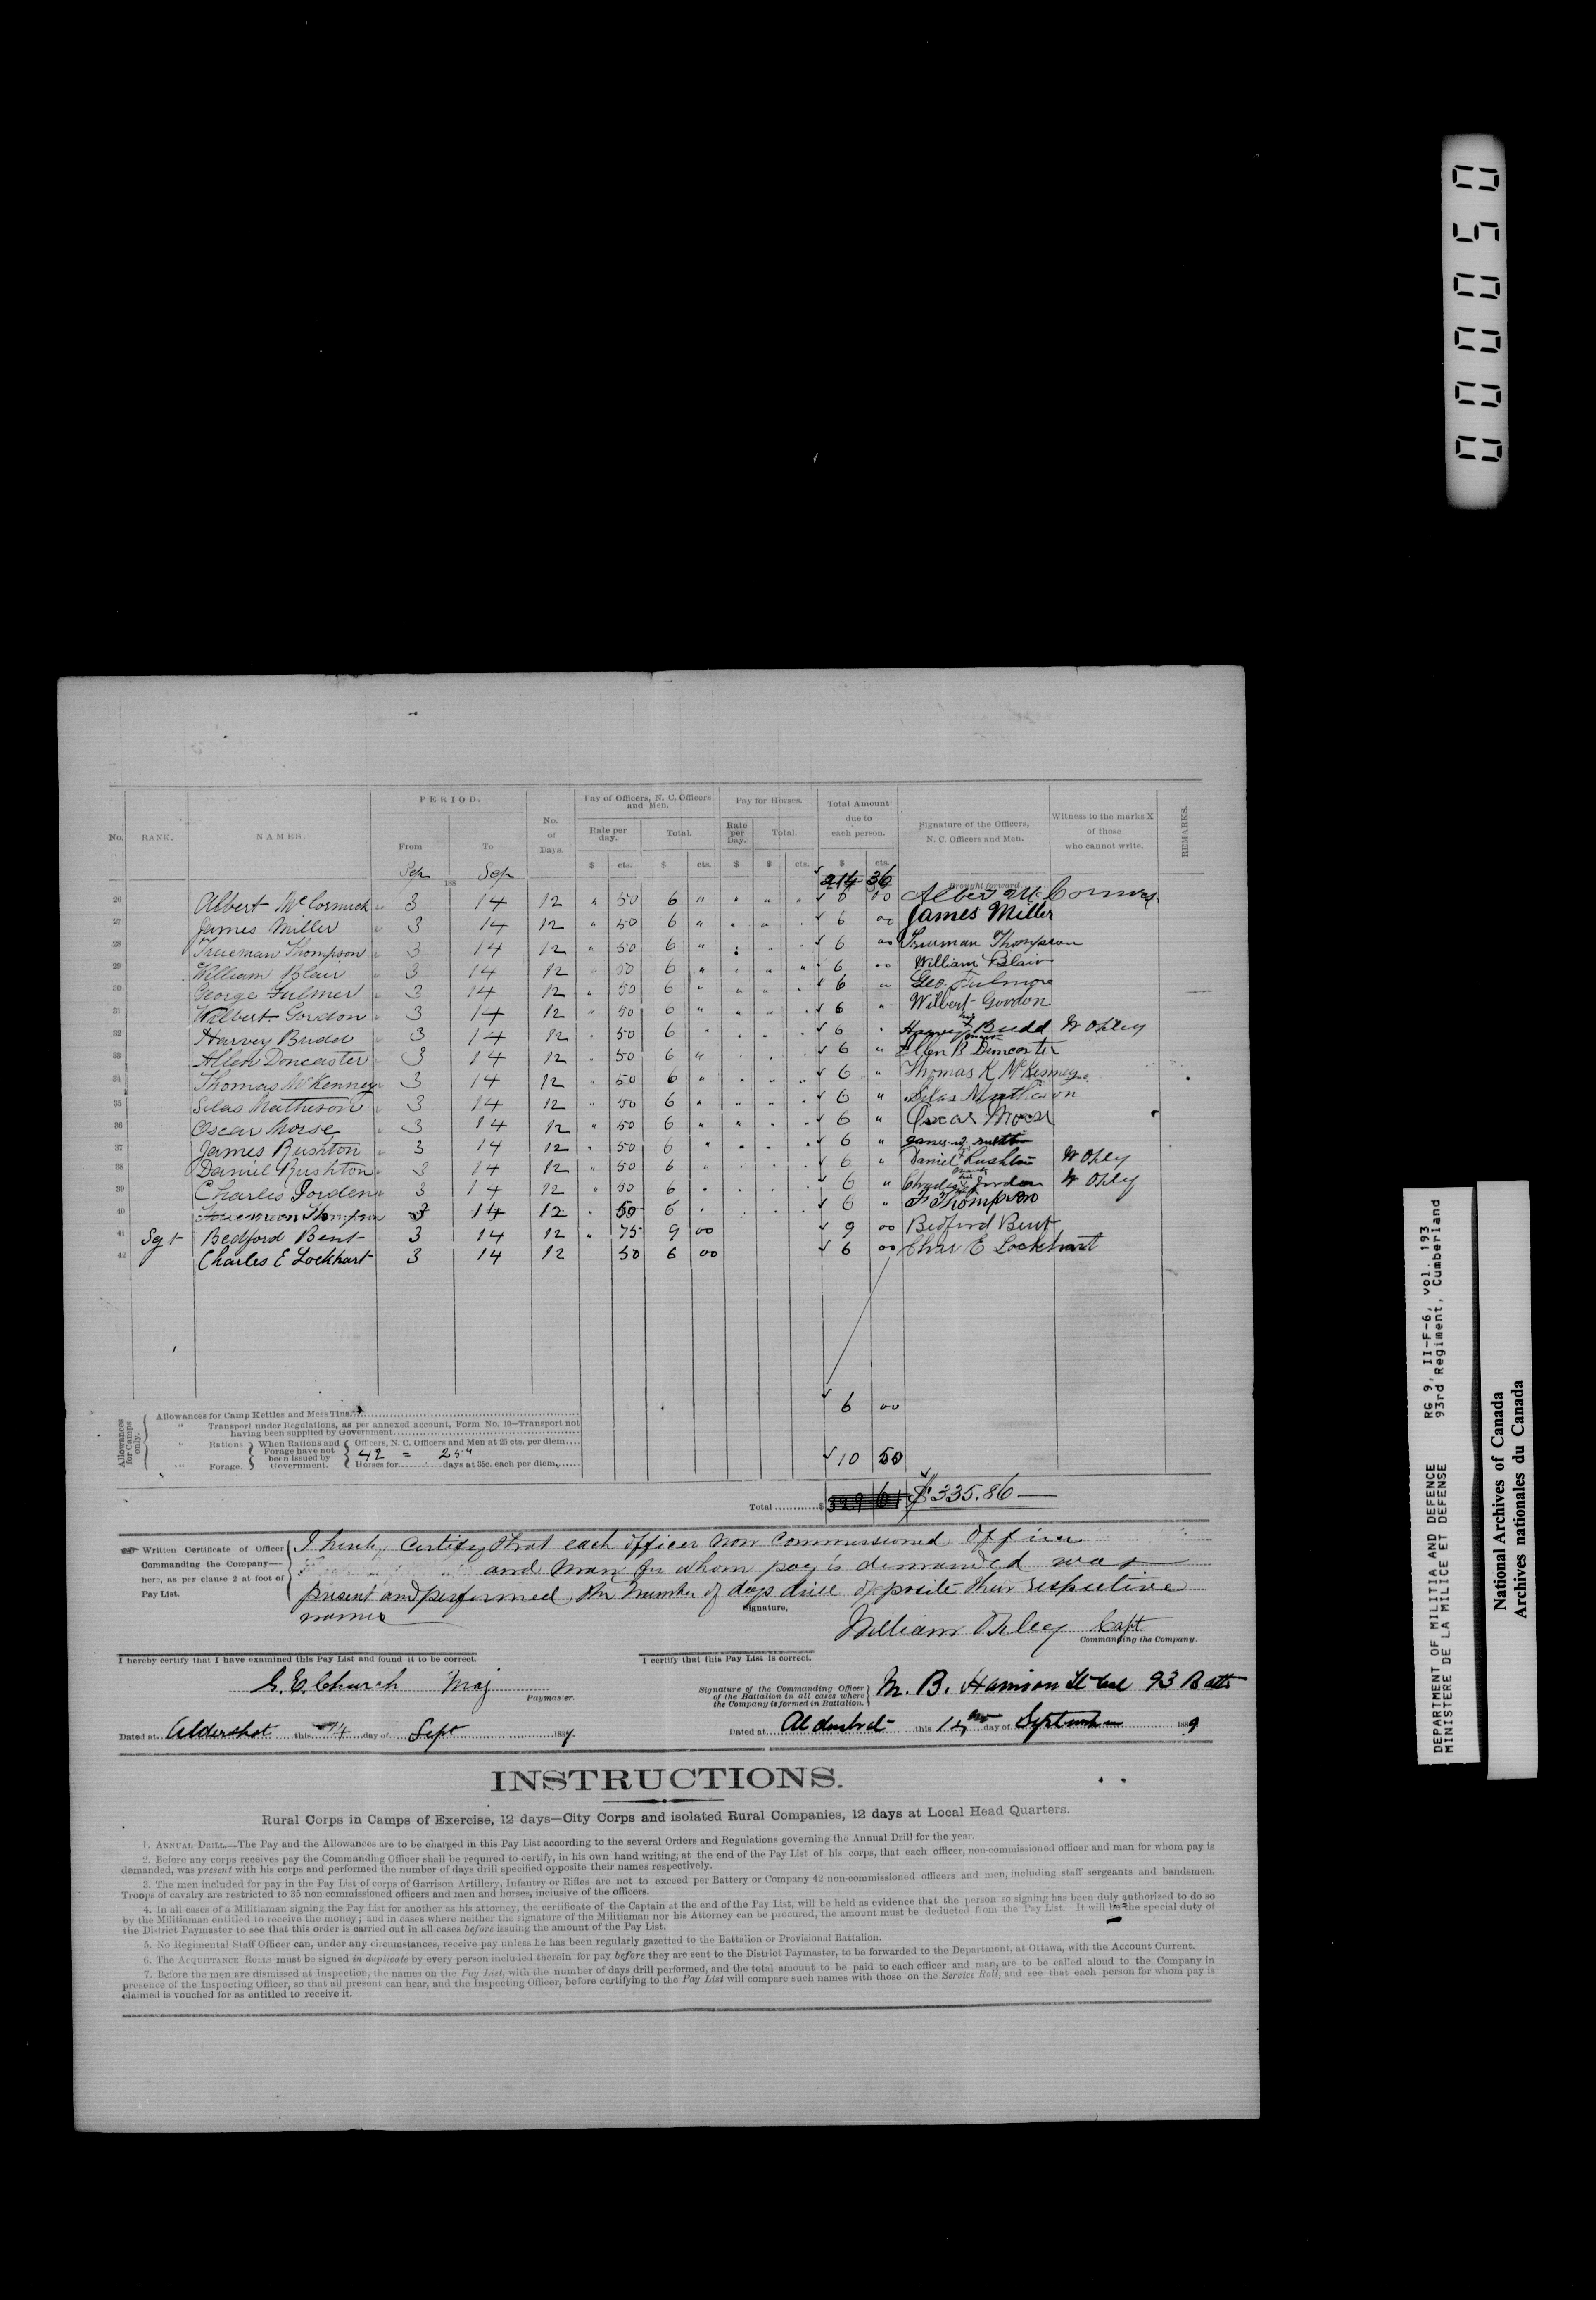 No. RANK. NAMES. PERIOD. No. of Days Pay of Officers, N. C. Officers and Men. Pay for Horses. Total Amount due to each person. Signature of the Officers, N. C. Officers and Men. Witness to the marks X of those who cannot write. REMARKS.
From To Rate per day. Total. Rate per Day. Total.
$ cts. $ cts. $ $ cts. $ cts.
Sep 188 Sep 214 36 Brought forward
26 Albert McCormick " 3 14 12 " 50 6 " " " " 6 00 Albert McCormick
27 James Miller " 3 14 12 " 50 6 " " " 6 00 James Miller
28 Trueman Thompson " 3 14 12 " 50 6 " 6 00 Trueman Thompson
29 William Blair " 3 14 12 " 50 6 " " " " 6 00 William Blair
30 George Fulmer " 3 14 12 " 50 6 " " " 6 " Geo. Fulmore
31 Wilbert Gordon " 3 14 12 " 50 6 " " " 6 " Wilbert Gordon
32 Harvey Budd " 3 14 12 " 50 6 " 6 " Harvey his X mark Budd W Oxley
33 Allen Doncaster " 3 14 12 " 50 6 " 6 " Allen B Doncaster
34 Thomas McKenney " 3 14 12 " 50 6 " " " " 6 " Thomas K McKenney
35 Silas Matheson " 3 14 12 " 50 6 " " " 6 " Silas Matheson
36 Oscar Morse " 3 14 12 " 50 6 " " " 6 " Oscar Morse
37 James Rushton 3 14 12 " 50 6 " " " 6 " James
38 Daniel Rushton " 3 14 12 " 50 6 " 6 " Daniel X Rushton W Oxley
39 Charles Jorden " 3 14 12 " 50 6 " 6 " Charles his X mark Jordon W Oxley
40 Thompson 3 14 12 " 50 6 " 6 " F Thompson
41 Sgt Bedford Bent 3 14 12 " 75 9 00 9 00 Bedford Bent
42 Charles E Lockhart 3 14 12 50 6 00 6 00 Chas E Lockhart
Allowances for Camps only.
Allowances for Camp Kettles and Mess Tins 6 00
" Transport under Regulations, as per annexed account, Form No. 10—Transport not
having been supplied by Government
" Rations } When Rations and Forage have not been issued by Government. { Officers, N. C. Officers and Men at 25 cts. per diem
42 = 25 " 10 50
" Forage. Horses for days at 35c. each per diem
Total $ 329 61 $335.86
Written Certificate of Officer Commanding the Company—here, as per clause 2 at foot of Pay List.
I hereby certify that each officer non commissioned officer
and man for whom pay is demanded was
present and performed the number of days drill opposite their respective
names
Signature, William Oxley Capt
Commanding the Company.
I hereby certify that I have examined this Pay List and found it to be correct.
G. E. Church Maj
Paymaster.
Dated at Aldershot this 14 day of Sept 1889.
I certify that this Pay List is correct.
Signature of the Commanding Officer of the Battalion in all cases where the Company is formed in Battalion. } M. B. Harrison Lt Col 93 Batt
Dated at Aldershot this 14 day of September 1889
INSTRUCTIONS.
Rural Corps in Camps of Exercise, 12 days—City Corps and isolated Rural Companies, 12 days at Local Head Quarters.
1. ANNUAL DRILL.—The Pay and the Allowances are to be charged in this Pay List according to the several Orders and Regulations governing the Annual Drill for the year.
2. Before any corps receives pay the Commanding Officer shall be required to certify, in his own hand writing, at the end of the Pay List of his corps, that each officer, non-commissioned officer and man for whom pay is
demanded, was present with his corps and performed the number of days drill specified opposite their names respectively.
3. The men included for pay in the Pay List of corps of Garrison Artillery, Infantry or Rifles are not to exceed per Battery or Company 42 non-commissioned officers and men, including staff sergeants and bandsmen.
Troops of cavalry are restricted to 35 non commissioned officers and men and horses, inclusive of the officers.
4. In all cases of a Militiaman signing the Pay List for another as his attorney, the certificate of the Captain at the end of the Pay List, will be held as evidence that the person so signing has been duly authorized to do so
by the Militiaman entitled to receive the money; and in cases where neither the signature of the Militiaman nor his Attorney can be procured, the amount must be deducted from the Pay List. It will be the special duty of
the District Paymaster to see that this order is carried out in all cases before issuing the amount of the Pay List.
5. No Regimental Staff Officer can, under any circumstances, receive pay unless he has been regularly gazetted to the Battalion or Provisional Battalion.
6. The ACQUITTANCE ROLLS must be signed in duplicate by every person included therein for pay before they are sent to the District Paymaster, to be forwarded to the Department, at Ottawa, with the Account Current.
7. Before the men are dismissed at Inspection, the names on the Pay List, with the number of days drill performed, and the total amount to be paid to each officer and man, are to be called aloud to the Company in
presence of the Inspecting Officer, so that all present can hear, and the Inspecting Officer, before certifying to the Pay List will compare such names with those on the Service Roll, and see that each person for whom pay is
claimed is vouched for as entitled to receive it.
000050
DEPARTMENT OF MILITIA AND DEFENCE RG 9, II-F-6, vol. 193
MINISTERE DE LA MILICE ET DEFENSE 93rd Regiment, Cumberland
National Archives of Canada
Archives nationales du Canada